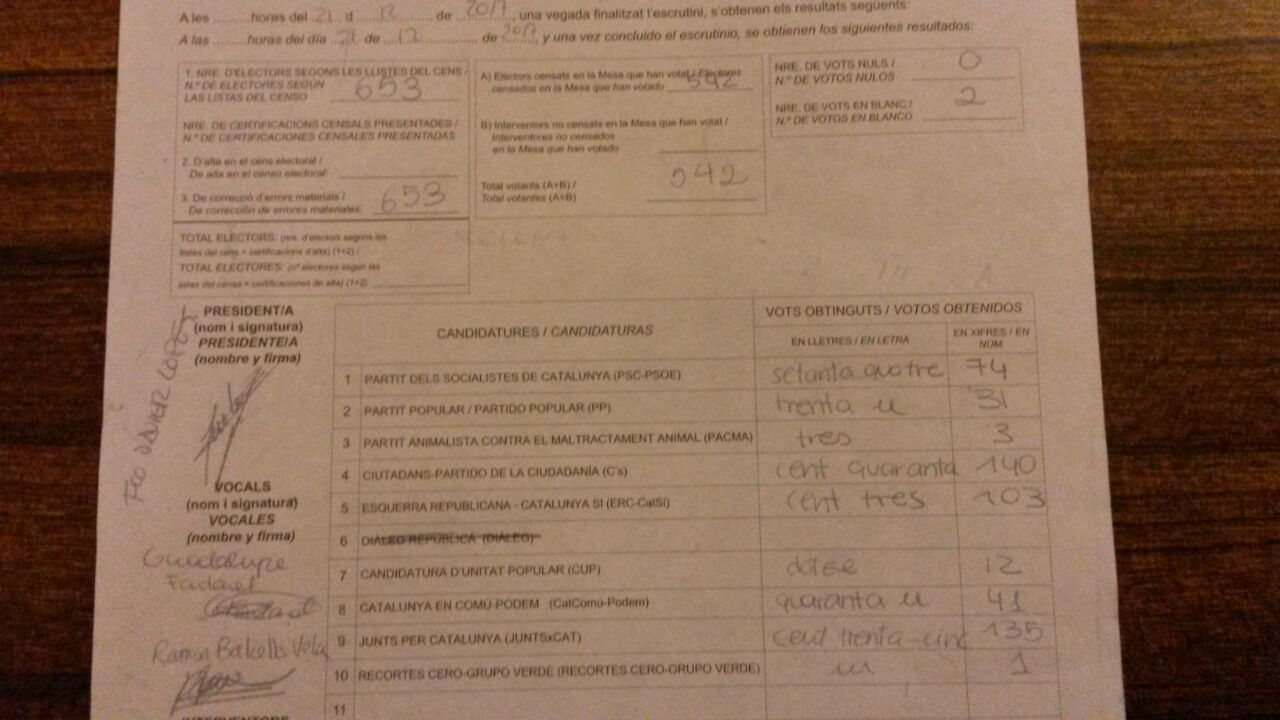 A les ......... hores del 21 d 12 de 2017, una vegada finalitzat l'escrutini, s'obtenen els resultats següents:
A las ......... horas del día 21 de 12 de 2017 y una vez concluido el escrutinio, se obtienen los siguientes resultados:
1. NRE. D'ELECTORS SEGONS LES LLISTES DEL CENS /
N.º DE ELECTORES SEGÚN
LAS LISTAS DEL CENSO 653
NRE. DE CERTIFICACIONS CENSALS PRESENTADES /
N.º DE CERTIFICACIONES CENSALES PRESENTADAS
2. D'alta en el cens electoral /
De alta en el censo electoral:
3. De correcció d'errors materials /
De corrección de errores materiales: 653
TOTAL ELECTORS: (nre. d'electors segons les
llistes del cens + certificacions d'alta) (1+2) /
TOTAL ELECTORES: (nº electores según las
listas del censo + certificaciones de alta) (1+2)
A) Electors censats en la Mesa que han votat / Electores
censados en la Mesa que han votado 542
B) Interventors no censats en la Mesa que han votat /
Interventores no censados
en la Mesa que han votado
Total votants (A+B) /
Total votantes (A+B) 542
NRE. DE VOTS NULS /
N.º DE VOTOS NULOS 0
NRE. DE VOTS EN BLANC /
N.º DE VOTOS EN BLANCO 2
PRESIDENT/A
(nom i signatura)
PRESIDENTE/A
(nombre y firma)
VOCALS
(nom i signatura)
VOCALES
(nombre y firma)
Guadalupe
Ramon Balcells Vela
CANDIDATURES / CANDIDATURAS
VOTS OBTINGUTS / VOTOS OBTENIDOS
EN LLETRES / EN LETRA
EN XIFRES / EN
NUM.
1 PARTIT DELS SOCIALISTES DE CATALUNYA (PSC-PSOE) setanta quatre 74
2 PARTIT POPULAR / PARTIDO POPULAR (PP) trenta u 31
3 PARTIT ANIMALISTA CONTRA EL MALTRACTAMENT ANIMAL (PACMA) tres 3
4 CIUTADANS-PARTIDO DE LA CIUDADANÍA (C's) cent quaranta 140
5 ESQUERRA REPUBLICANA - CATALUNYA SI (ERC-CatSí) cent tres 103
6 DIÀLEG REPÚBLICA (DIÀLEG)
7 CANDIDATURA D'UNITAT POPULAR (CUP) dotze 12
8 CATALUNYA EN COMÚ-PODEM (CatComú-Podem) quaranta u 41
9 JUNTS PER CATALUNYA (JUNTSxCAT) cent trenta-cinc 135
10 RECORTES CERO-GRUPO VERDE (RECORTES CERO-GRUPO VERDE) un 1
11